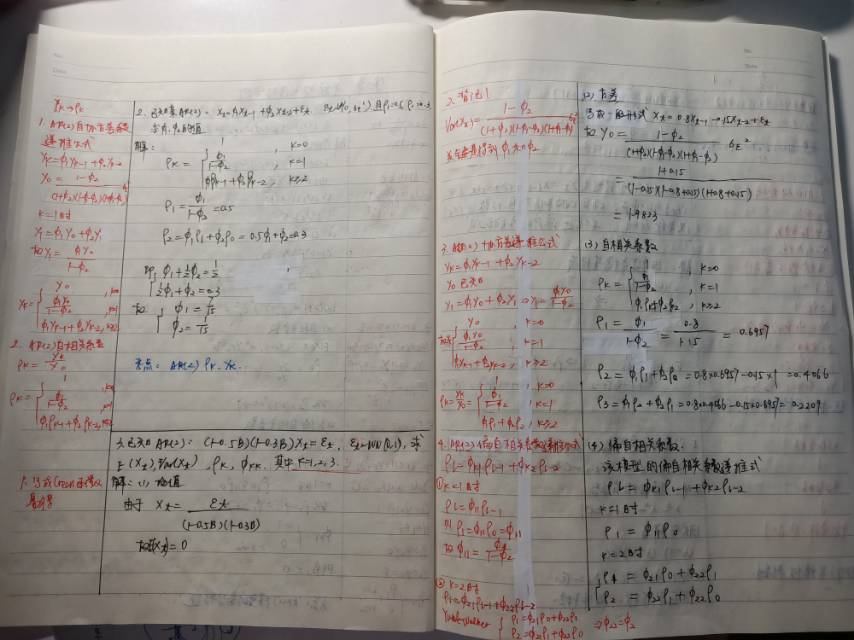 γk→ρk
1. AR(2)自协方差函数
递推公式
γk=φ1γk-1+φ2γk-2
γ0=1-φ2
(1+φ2)(1-φ1-φ2)(1+φ1-φ2)
k=1时
γ1=φ1γ0+φ2γ1
故γ1=φ1γ0
1-φ2
γk= γ0
φ1γ0
1-φ2
φ1γk-1+φ2γk-2
2. AR(2)自相关系数
ρk=γk
γ0
ρk= 1
φ1
1-φ2
φ1ρk-1+φ2ρk-2
2. 已知某AR(2): Xt=φ1Xt-1+φ2Xt-2+εt
求φ1,φ2的值
解:
ρk= 1 , k=0
φ1
1-φ2 , k=1
φ1ρk-1+φ2ρk-2, k≥2
ρ1=φ1
1-φ2 =0.5
ρ2=φ1ρ1+φ2ρ0=0.5φ1+φ2=0.3
即 φ1+½φ2=½
½φ1+φ2=0.3
故 φ1=7
15
φ2=1
15
考点: AR(2) ρk. γk.
3. 已知AR(2): (1-0.5B)(1-0.3B)Xt=εt, εt~WN(0,1), 求
E(Xt), Var(Xt), ρk, φkk. 其中k=1,2,3.
解: (1) 均值
由于 Xt= εt
(1-0.5B)(1-0.3B)
故E(Xt)=0
1. 写成Green函数
2. 背记1
Var(Xt)= 1-φ2
(1+φ2)(1-φ1-φ2)(1+φ1-φ2)
3. AR(2)协方差递推公式
γk=φ1γk-1+φ2γk-2
γ0已知
γ1=φ1γ0+φ2γ1⇒γ1=φ1γ0
1-φ2
γ0 , k=0
φ1γ0
1-φ2 , k=1
φ1γk-1+φ2γk-2, k≥2
ρk=γk
γ0 = 1 , k=0
φ1
1-φ2 , k=1
k≥2
4. AR(2)偏自相关系数递推公式
ρk=φk1ρk-1+φk2ρk-2
① k=1时
ρk=φ11ρk-1
则ρ1=φ11ρ0=φ11
故φ11=φ1
1-φ2
② k=2时
ρk=φ21ρk-1+φ22ρk-2
Yule-Walker ρ1=φ21ρ0+φ22ρ1
ρ2=φ21ρ1+φ22ρ0 ⇒φ22=φ2
(2) 方差
写成一般形式 Xt=0.8Xt-1-0.15Xt-2+εt
故 γ0= 1-φ2
(1+φ2)(1-φ1-φ2)(1+φ1-φ2) σε²
= 1+0.15
(1-0.15)(1-0.8+0.15)(1+0.8+0.15)
=1.9823
(3) 自相关系数
ρk= 1 , k=0
φ1
1-φ2 , k=1
k≥2
ρ1= φ1
1-φ2 = 0.8
1+0.15 = 0.6957
ρ2=φ1ρ1+φ2ρ0=0.8×0.6957-0.15×1=0.4066
ρ3=φ1ρ2+φ2ρ1=0.8×0.4066-0.15×0.6957=0.2209
(4) 偏自相关系数.
该模型的偏自相关系数递推式
ρk=φk1ρk-1+φk2ρk-2
k=1时
ρ1=φ11ρ0
k=2时
ρ1=φ21ρ0+φ22ρ1
ρ2=φ22ρ1+φ22ρ0